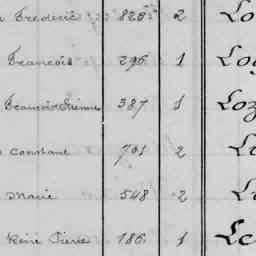 Frederic 825 2 Lo
Francois 296 1 Lo
Francois Etienne 387 1 Loz
Constant 701 2 Lu
Marie 548 2 Lu
René Pierre 186 1 Le